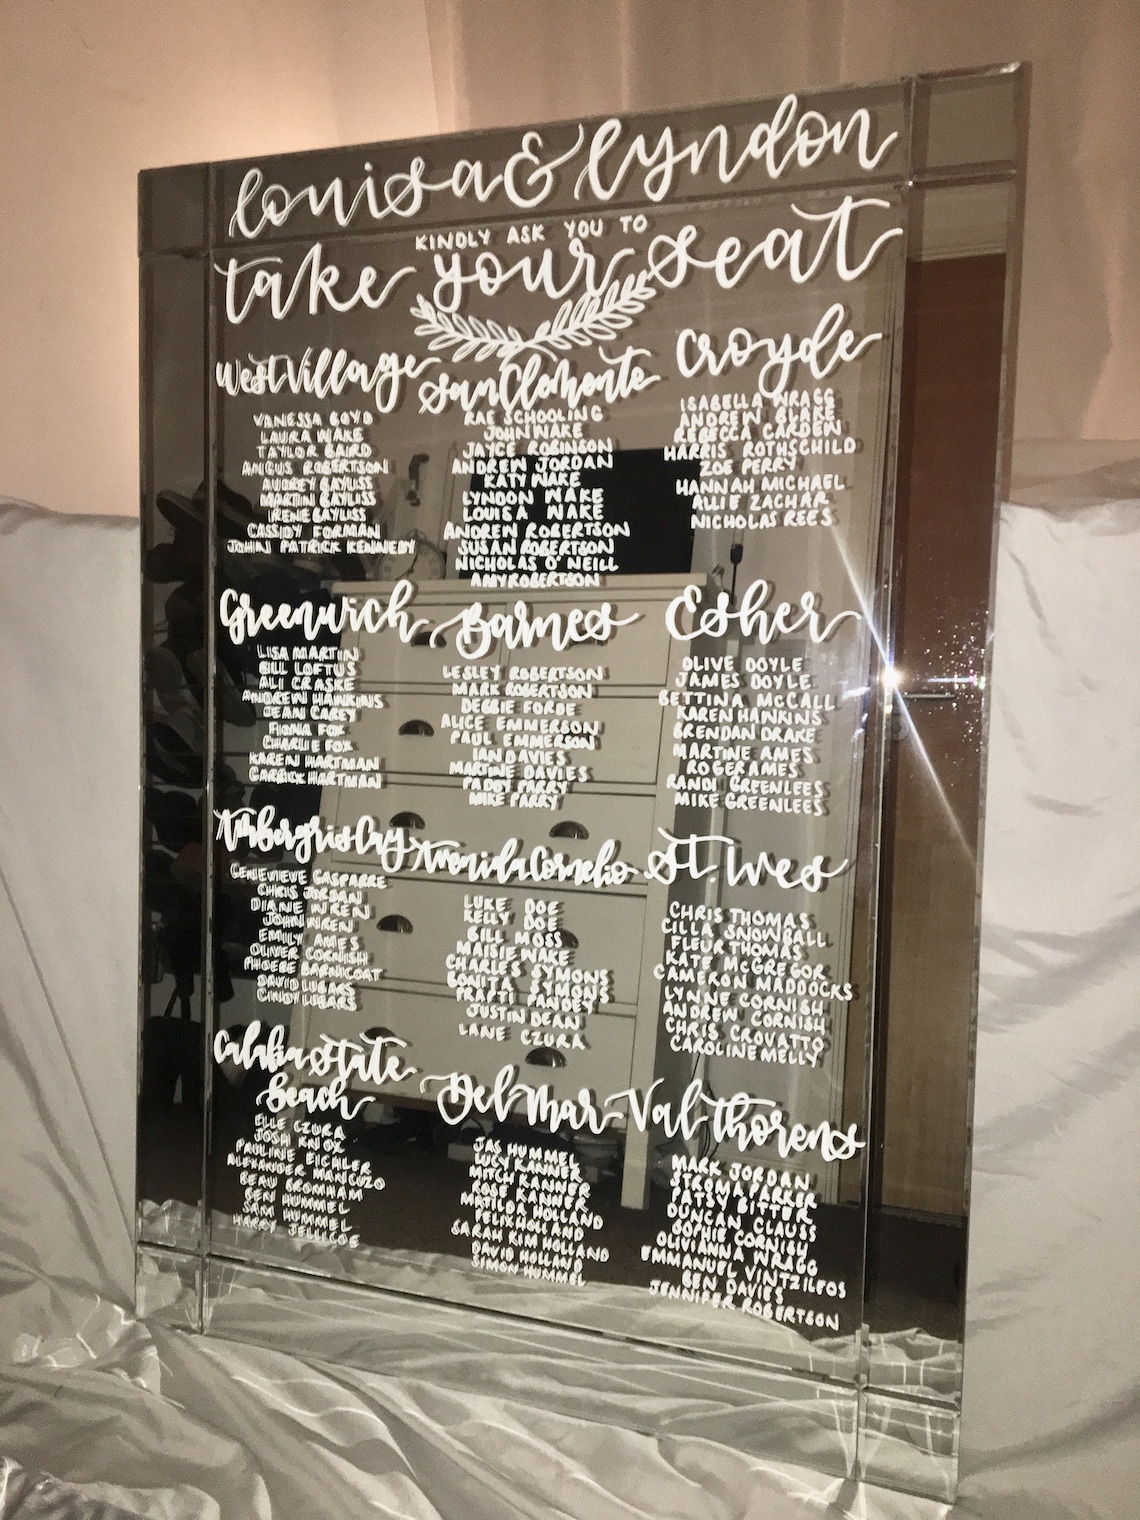 Louisa & Lyndon
KINDLY ASK YOU TO
take your seat
West Village
VANESSA BOYD
LAURA WAKE
TAYLOR BAIRD
ANGUS ROBERTSON
AUDREY BAYLISS
MARTIN BAYLISS
IRENE BAYLISS
CASSIDY FORMAN
JOHN PATRICK KENNEDY
San Clemente
RAE SCHOOLING
JOHN WAKE
JAYCE ROBINSON
ANDREW JORDAN
KATY WAKE
LYNDON WAKE
LOUISA WAKE
ANDREW ROBERTSON
SUSAN ROBERTSON
NICHOLAS O'NEILL
AMY ROBERTSON
Croyde
ISABELLA WRAGG
ANDREW BLAKE
REBECCA CARDEN
HARRIS ROTHSCHILD
ZOE PERRY
HANNAH MICHAEL
ALLIE ZACHAR
NICHOLAS REES
Greenwich
LISA MARTIN
BILL LOFTUS
ALI CRASKE
ANDREW HAWKINS
DEAN CAREY
FIONA FOX
CHARLIE FOX
KAREN HARTMAN
GARRICK HARTMAN
Barnes
LESLEY ROBERTSON
MARK ROBERTSON
DEBBIE FORDE
ALICE EMMERSON
PAUL EMMERSON
IAN DAVIES
MARTINE DAVIES
PADDY PARRY
MIKE PARRY
Esher
OLIVE DOYLE
JAMES DOYLE
BETTINA McCALL
KAREN HANKINS
BRENDAN DRAKE
MARTINE AMES
ROGER AMES
RANDI GREENLEES
MIKE GREENLEES
Ambergris Cay
GENEVIEVE GASPARRE
CHRIS JORDAN
DIANE WREN
JOHN WREN
EMILY AMES
OLIVER CORNISH
PHOEBE BARNICOAT
DAVID LUBARS
CINDY LUBARS
Avenida Cornelio
LUKE DOE
KELLY DOE
BILL MOSS
MAISIE WAKE
CHARLES SYMONS
BONITA SYMONS
PRAPTI PANDEY
JUSTIN DEAN
LANE CZURA
St Ives
CHRIS THOMAS
CILLA SNOWBALL
FLEUR THOMAS
KATE McGREGOR
CAMERON MADDOCKS
LYNNE CORNISH
ANDREW CORNISH
CHRIS CROVATTO
CAROLINE MELLY
State
Beach
ELLE CZURA
JOSH KNOX
PAULINE EICHLER
ALEXANDER MANCUZO
BEAU BROMHAM
BEN HUMMEL
SAM HUMMEL
HARRY JELLICOE
Del Mar
JAS HUMMEL
LUCY KANNER
MITCH KANNER
ROSE KANNER
MATILDA HOLLAND
FELIX HOLLAND
SARAH KIM HOLLAND
DAVID HOLLAND
SIMON HUMMEL
Val Thorens
MARK JORDAN
STROMA PARKER
PATSY BITTER
DUNCAN CLAUSS
SOPHIE CORNISH
OLIVIANNA WRAGG
EMMANUEL VINTZILEOS
BEN DAVIES
JENNIFER ROBERTSON